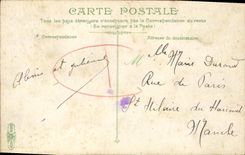 CARTE POSTALE
Tous les pays étrangers n'acceptent pas la Correspondance au recto
(Se renseigner à la Poste)
Correspondance
Adresse du destinataire
Mlle Marie Durand
Rue de Paris
St Hilaire du Harcouet
Manche